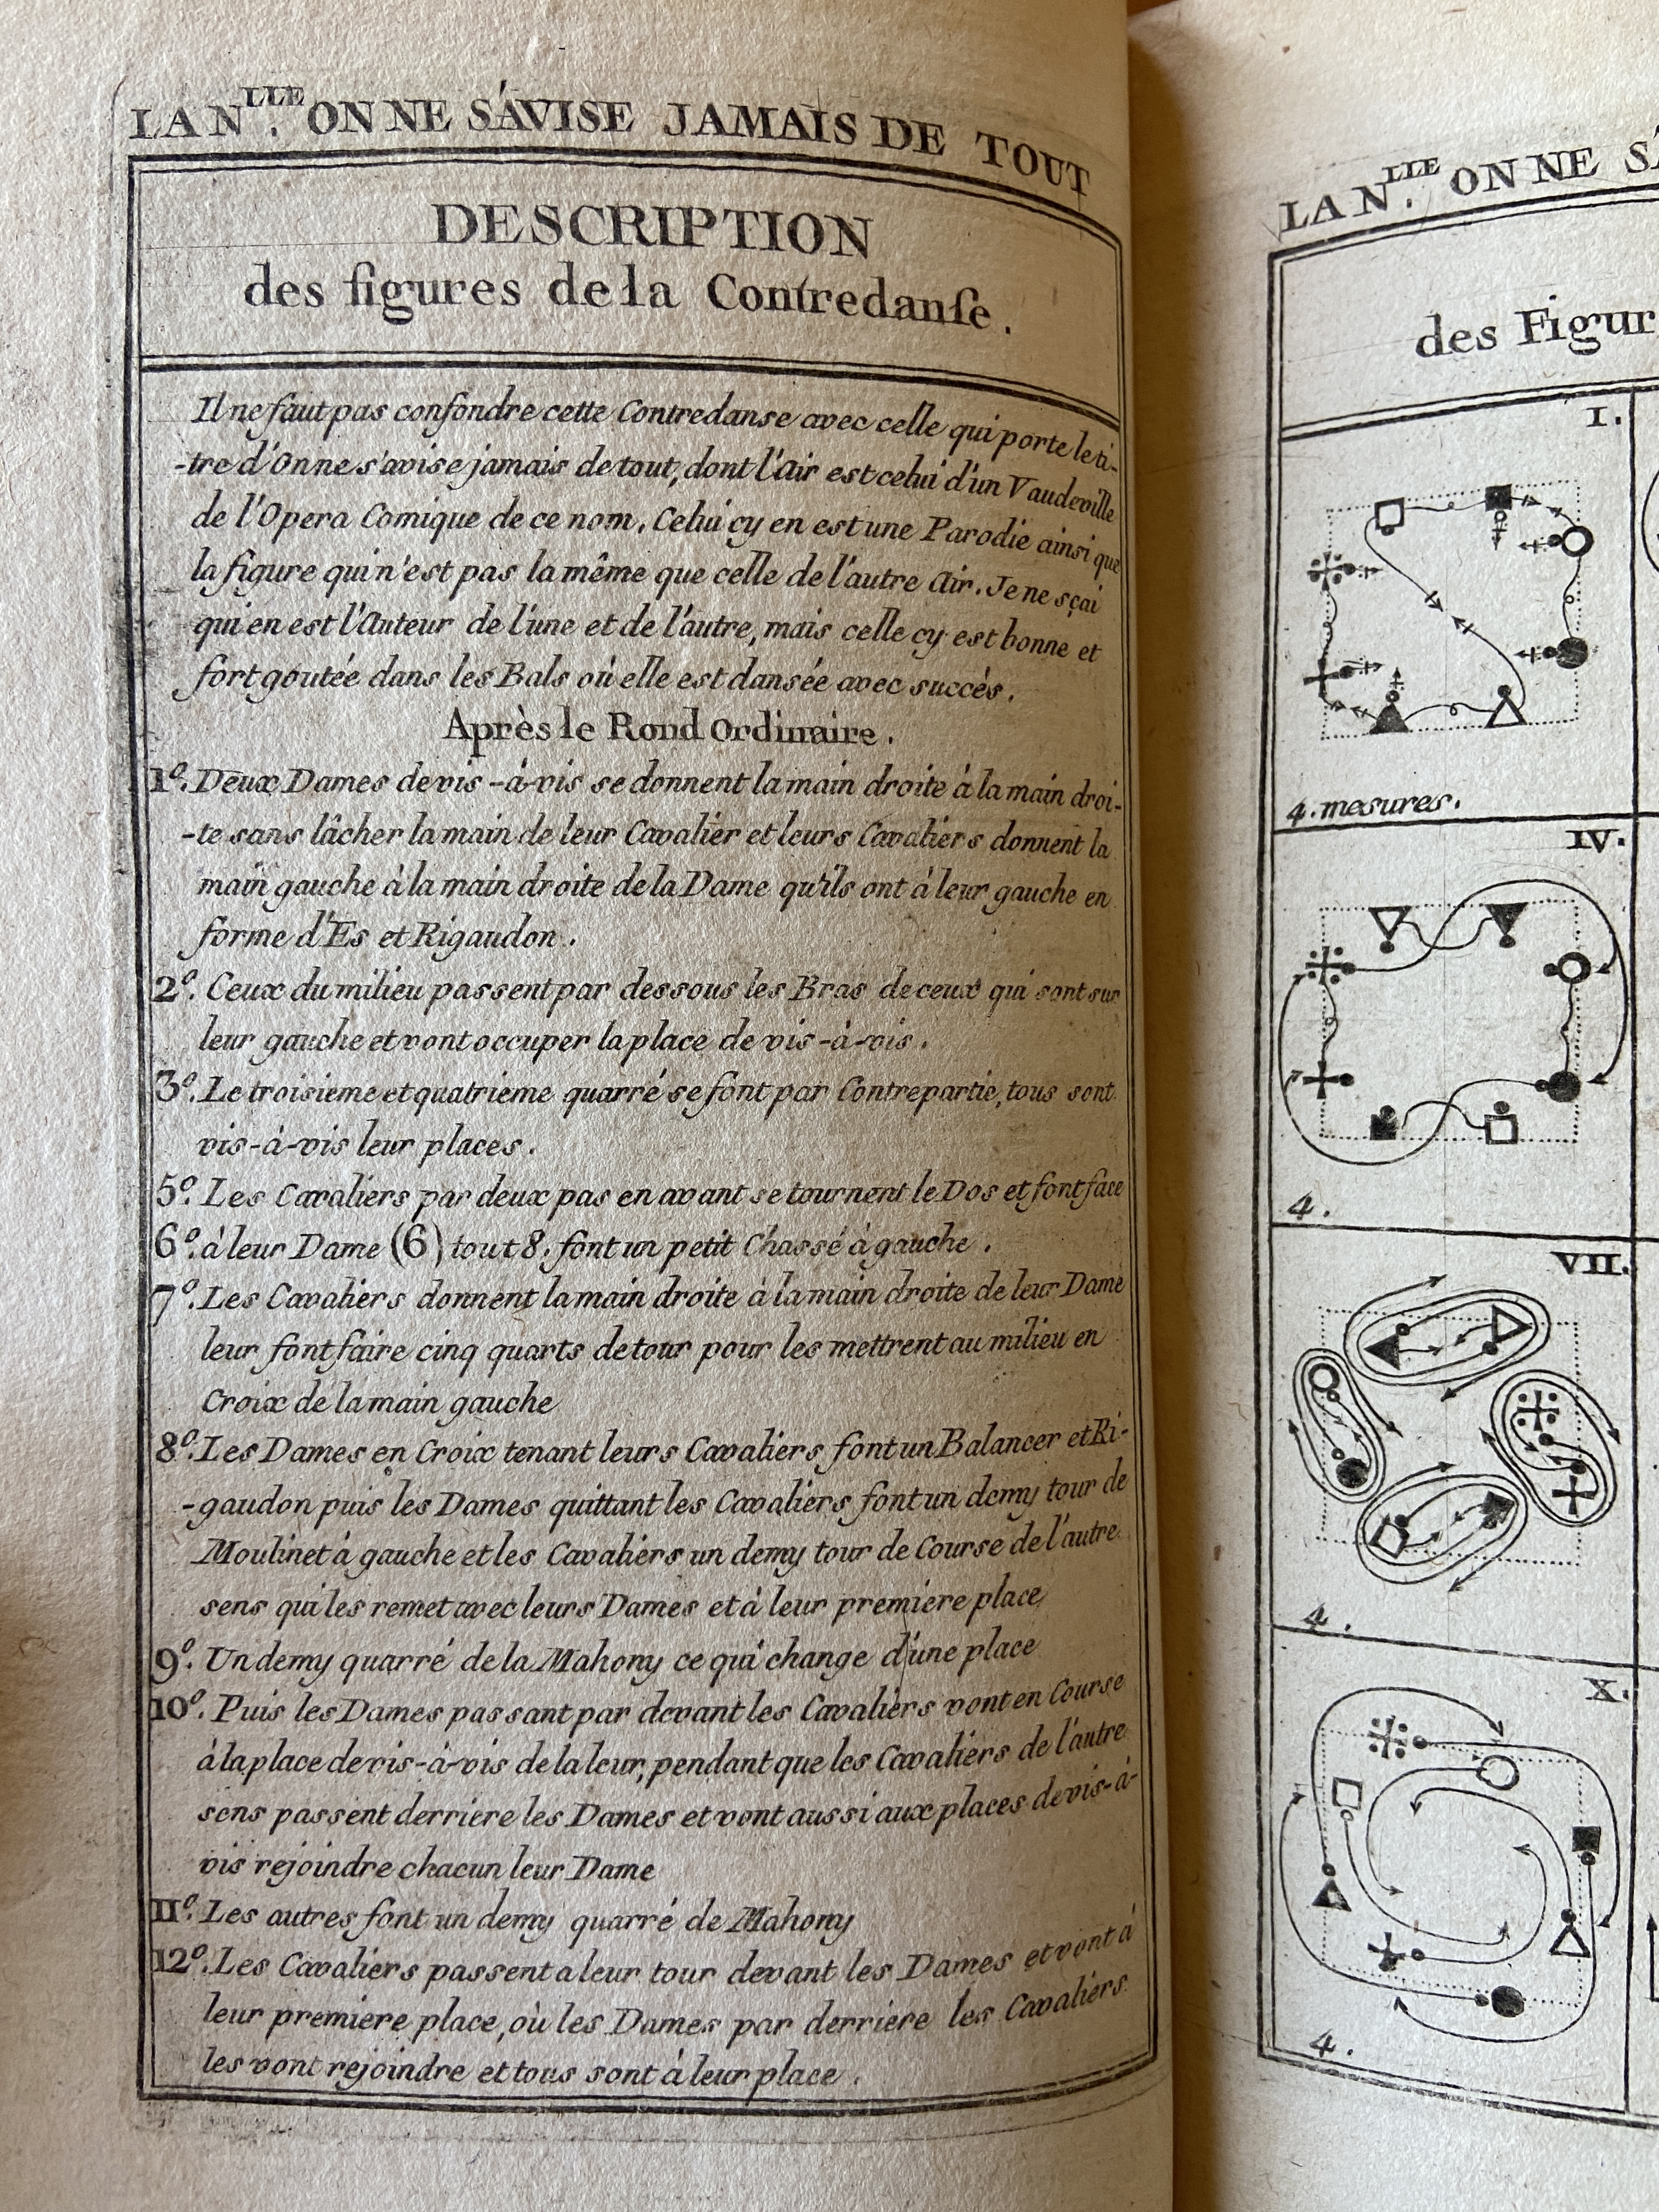 LA N.LLE ON NE S'AVISE JAMAIS DE TOUT
DESCRIPTION
des figures de la Contredanse.
Il ne faut pas confondre cette Contredanse avec celle qui porte le ti-
-tre d'On ne s'avise jamais de tout, dont l'Air est celui d'un Vaudeville
de l'Opera Comique de ce nom. Celui cy en est une Parodie ainsi que
la figure qui n'est pas la même que celle de l'autre Air. Je ne sçai
qui en est l'Auteur de l'une et de l'autre, mais celle cy est bonne et
fort goutée dans les Bals où elle est dansée avec succès.
Après le Rond Ordinaire.
1º. Deux Dames de vis-à-vis se donnent la main droite à la main droi-
-te sans lâcher la main de leur Cavalier et leurs Cavaliers donnent la
main gauche à la main droite de la Dame qu'ils ont à leur gauche en
forme d'Es et Rigaudon.
2º. Ceux du milieu passent par dessous les Bras de ceux qui sont sur
leur gauche et vont occuper la place de vis-à-vis.
3º. Le troisieme et quatrieme quarré se font par Contrepartie, tous sont
vis-à-vis leur places.
5º. Les Cavaliers par deux pas en avant se tournent le Dos et font face
6º. à leur Dame (6) tout 8. font un petit Chassé à gauche.
7º. Les Cavaliers donnent la main droite à la main droite de leur Dame
leur font faire cinq quarts de tour pour les mettrent au milieu en
Croix de la main gauche
8º. Les Dames en Croix tenant leurs Cavaliers font un Balancer et Ri-
-gaudon puis les Dames quittant les Cavaliers font un demy tour de
Moulinet à gauche et les Cavaliers un demy tour de Course de l'autre
sens qui les remet avec leurs Dames et à leur premiere place
9º. Un demy quarré de la Mahony ce qui change d'une place
10º. Puis les Dames passant par devant les Cavaliers vont en Course
à la place de vis-à-vis de la leur, pendant que les Cavaliers de l'autre
sens passent derriere les Dames et vont aussi aux places de vis-à-
vis rejoindre chacun leur Dame
11º. Les autres font un demy quarré de Mahony
12º. Les Cavaliers passent a leur tour devant les Dames et vont à
leur premiere place, où les Dames par derriere les Cavaliers
les vont rejoindre et tous sont à leur place.
LA N.LLE ON NE
des Figur
I.
4. mesures.
IV.
4.
VII.
4.
X.
4.